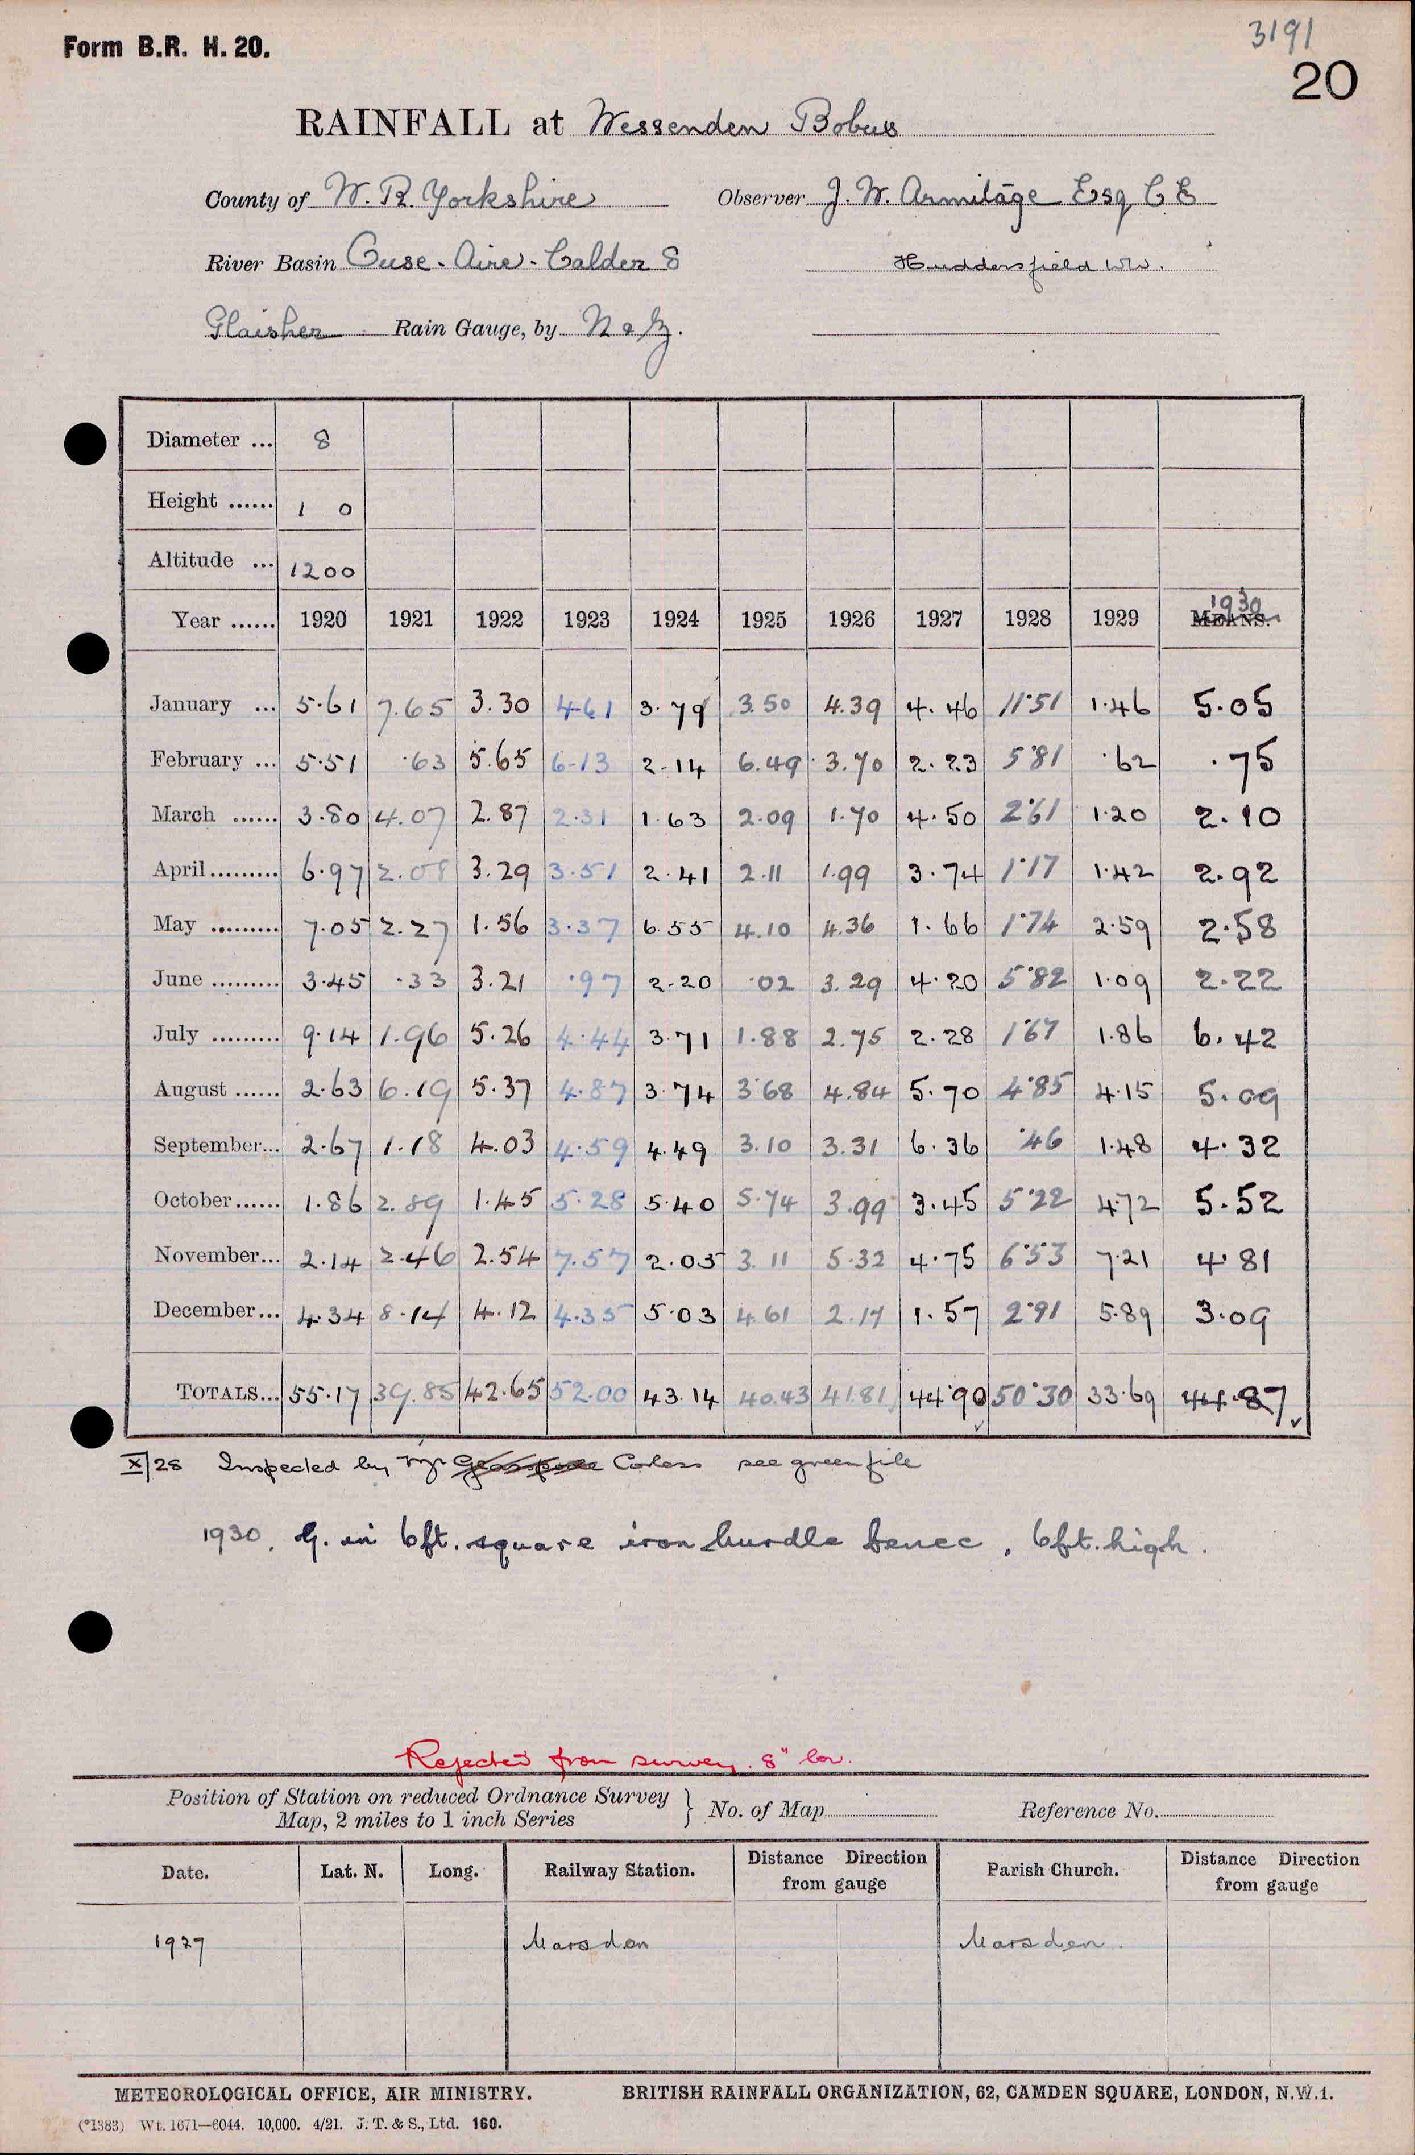 3191
Form B.R. H. 20.
20
RAINFALL at Wessenden Bobus
County of W. R. Yorkshire Observer J. W. Armitage Esq C E
River Basin Ouse - Aire - Calder 8 Huddersfield WW.
Glaisher Rain Gauge, by N & Z.
Diameter ... 8
Height ...... 1 0
Altitude ... 1200
1930
Year ...... 1920 1921 1922 1923 1924 1925 1926 1927 1928 1929 MEANS.
January ... 5.61 7.65 3.30 4.61 3.79 3.50 4.39 4.46 11.51 1.46 5.05
February ... 5.51 .63 5.65 6.13 2.14 6.49 3.70 2.23 5.81 .62 .75
March ...... 3.80 4.07 2.87 2.31 1.63 2.09 1.70 4.50 2.61 1.20 2.10
April......... 6.97 2.08 3.29 3.51 2.41 2.11 1.99 3.74 1.17 1.42 2.92
May ......... 7.05 2.27 1.56 3.37 6.55 4.10 4.36 1.66 1.74 2.59 2.58
June ......... 3.45 .33 3.21 .97 2.20 .02 3.29 4.20 5.82 1.09 2.22
July ......... 9.14 1.96 5.26 4.44 3.71 1.88 2.75 2.28 1.67 1.86 6.42
August ...... 2.63 6.19 5.37 4.87 3.74 3.68 4.84 5.70 4.85 4.15 5.09
September... 2.67 1.18 4.03 4.59 4.49 3.10 3.31 6.36 .46 1.48 4.32
October...... 1.86 2.89 1.45 5.28 5.40 5.74 3.99 3.45 5.22 4.72 5.52
November... 2.14 2.46 2.54 7.57 2.05 3.11 5.32 4.75 6.53 7.21 4.81
December... 4.34 8.14 4.12 4.35 5.03 4.61 2.17 1.57 2.91 5.89 3.09
TOTALS... 55.17 39.85 42.65 52.00 43.14 40.43 41.81 44.90 50.30 33.69 44.87
X/28 Inspected by Mr Glasspoole Coless see green file
1930. G. in 6ft. square iron hurdle fence, 6ft. high.
Rejected from survey. 8" low.
Position of Station on reduced Ordnance Survey Map, 2 miles to 1 inch Series } No. of Map Reference No.
Date. Lat. N. Long. Railway Station. Distance Direction from gauge Parish Church. Distance Direction from gauge
1927 Marsden Marsden.
METEOROLOGICAL OFFICE, AIR MINISTRY. BRITISH RAINFALL ORGANIZATION, 62, CAMDEN SQUARE, LONDON, N.W.1.
(*1383) Wt. 1671—6044. 10,000. 4/21. J. T. & S., Ltd. 160.